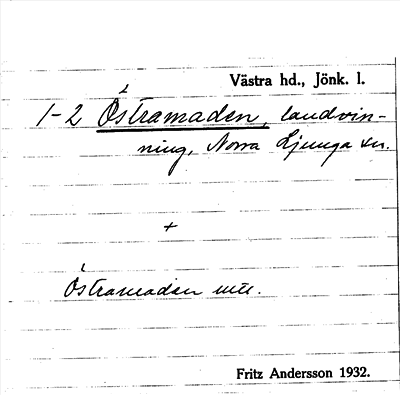 Västra hd., Jönk. l.
1-2 Östramaden, landvin-
ning, Norra Ljunga sn.
+
Östramaden
Fritz Andersson 1932.